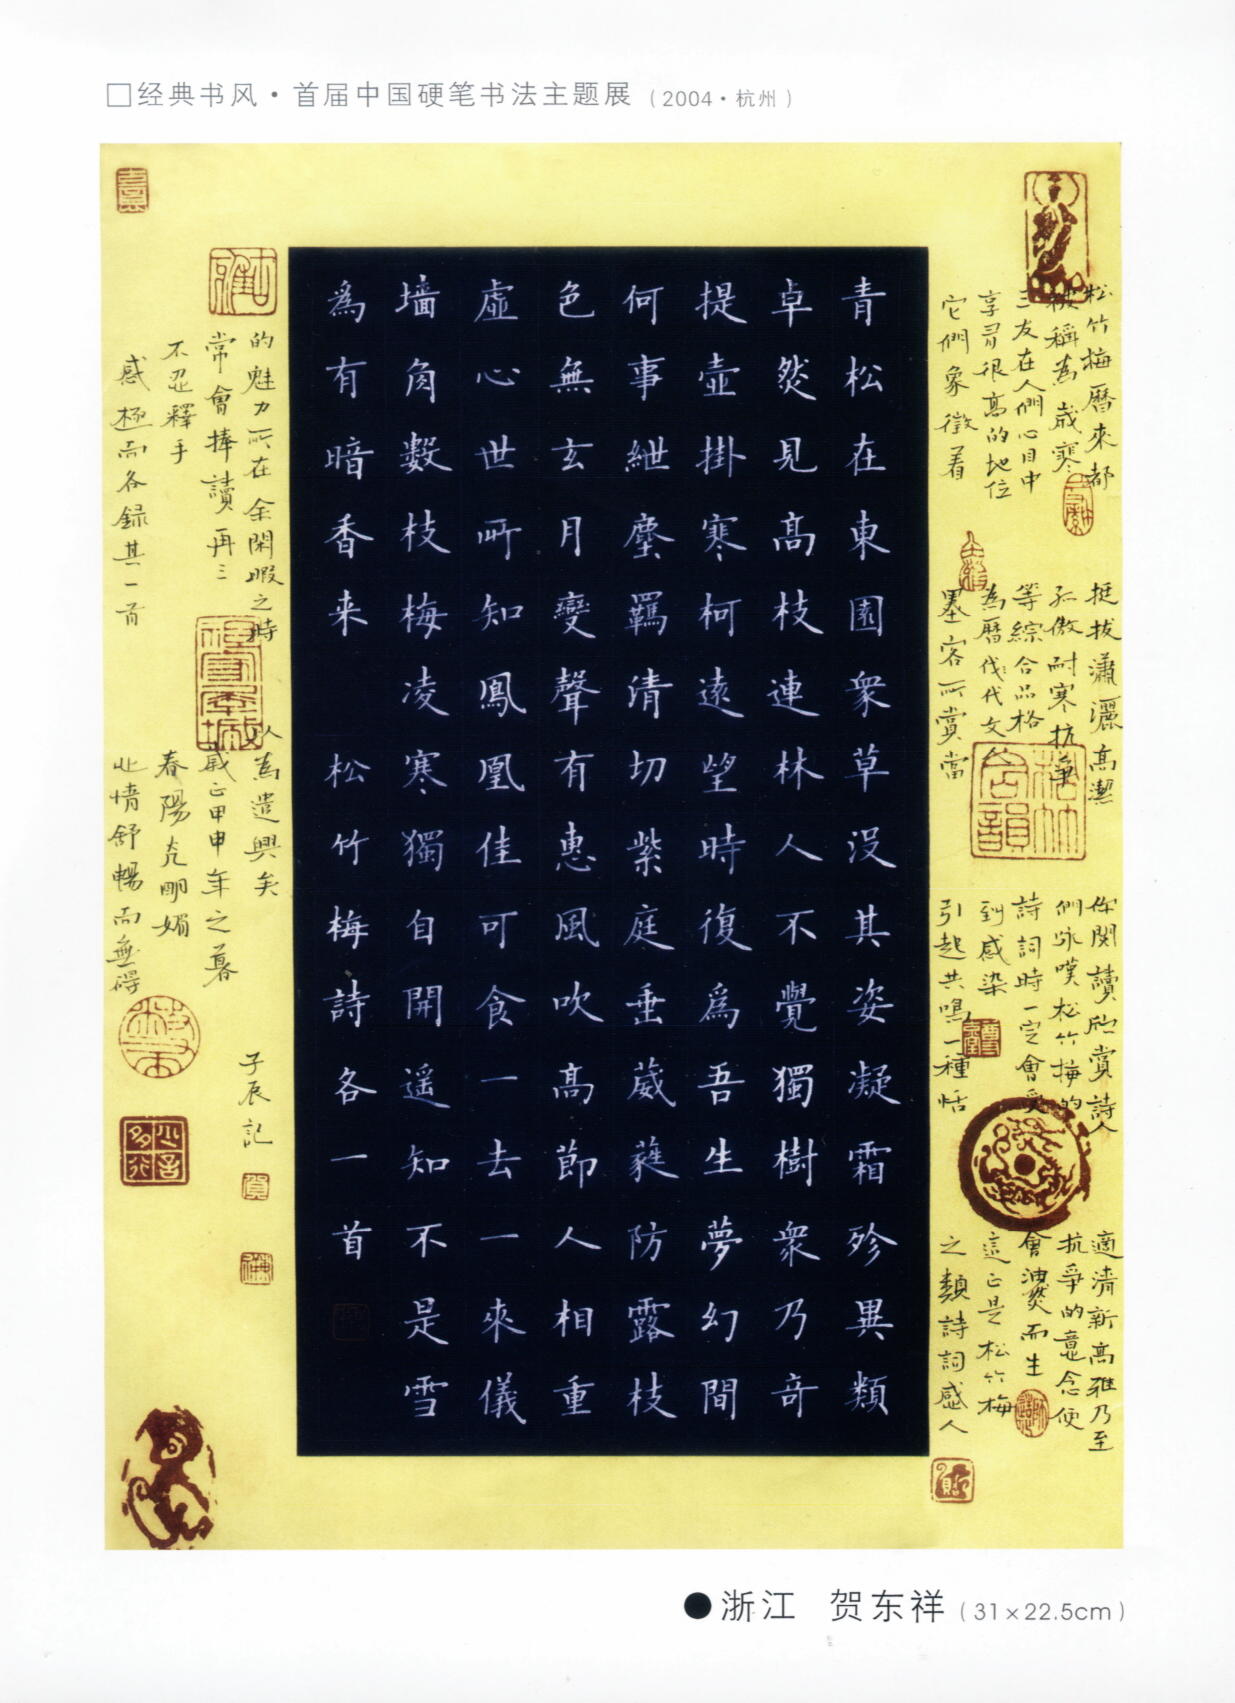 □经典书风·首届中国硬笔书法主题展（2004·杭州）
青松在東園衆草没其姿凝霜殄異類
卓然見高枝連林人不覺獨樹衆乃奇
提壺掛寒柯遠望時復爲吾生夢幻間
何事紲塵羈清切紫庭垂葳蕤防露枝
色無玄月變聲有惠風吹高節人相重
虛心世所知鳳凰佳可食一去一來儀
墙角數枝梅凌寒獨自開遥知不是雪
為有暗香来 松竹梅詩各一首
松竹梅曆來都
被稱為歲寒
三友在人們心目中
享有很高的地位
它們象徵着
挺拔瀟灑高潔
孤傲耐寒抗爭
等綜合品格
為曆代代文人
墨客所賞當
你閱讀欣賞詩人
們咏嘆松竹梅的
詩詞時一定會受
到感染
引起共鳴一種恬
適清新高雅乃至
抗爭的意念便
會油然而生
這正是松竹梅
之類詩詞感人
的魅力所在余閑暇之時
常會捧讀再三
不忍釋手
感極而各録其一首
以為遣興矣
歲正甲申年之暮
春陽光明媚
心情舒暢而無碍
子辰記
●浙江 贺东祥（31×22.5cm）